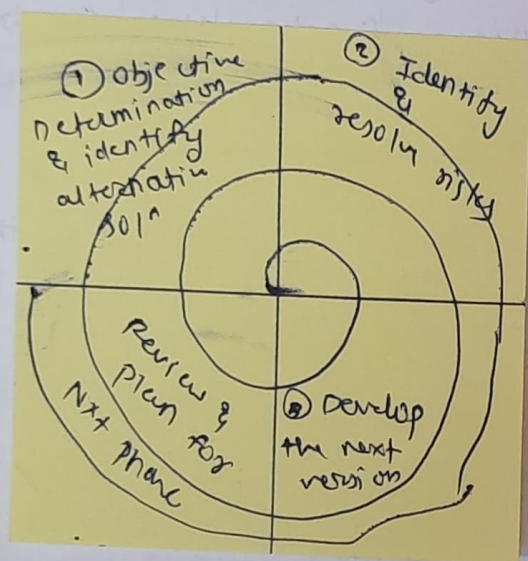 ① Objective
Determination
& identify
alternative
solⁿ
② Identify
&
resolve risks
③ Develop
the next
version
Review &
plan for
Nxt phase